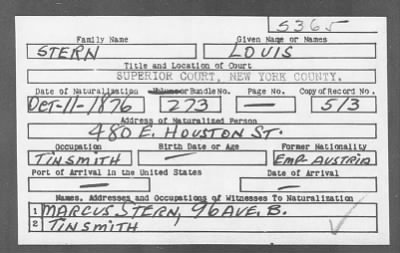 S365
Family Name Given Name or Names
STERN LOUIS
Title and Location of Court
SUPERIOR COURT, NEW YORK COUNTY.
Date of Naturalization Volume or Bundle No. Page No. Copy of Record No.
Oct-11-1876 273 — 513
Address of Naturalized Person
480 E. HOUSTON ST.
Occupation Birth Date or Age Former Nationality
TINSMITH — EMP. AUSTRIA
Port of Arrival in the United States Date of Arrival
— —
Names, Addresses and Occupations of Witnesses To Naturalization
1 MARCUS STERN, 96 AVE. B.
2 TINSMITH